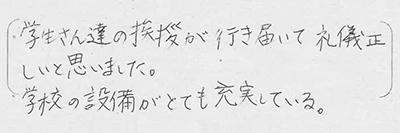 学生さん達の挨拶が行き届いて礼儀正
しいと思いました。
学校の設備がとても充実している。